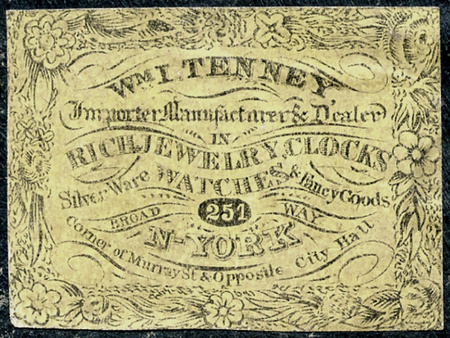 Wm I. TENNEY
Importer Manufacturer & Dealer
IN
RICH JEWELRY, CLOCKS
WATCHES
Silver Ware & Fancy Goods
251
BROAD WAY
N-YORK
Corner of Murray St & Opposite City Hall